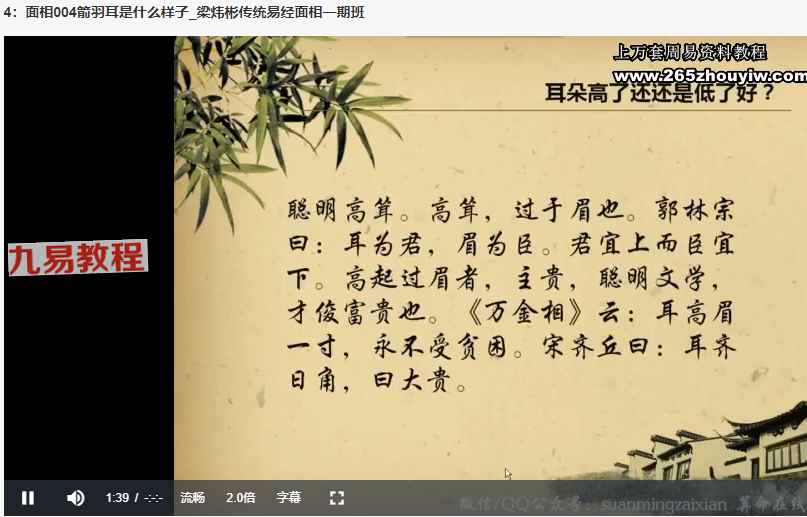 4：面相004箭羽耳是什么样子_梁炜彬传统易经面相一期班
上万套周易资料教程
www.265zhouyiw.com
耳朵高了还还是低了好？
聪明高耸。高耸，过于眉也。郭林宗
曰：耳为君，眉为臣。君宜上而臣宜
下。高起过眉者，主贵，聪明文学，
才俊富贵也。《万金相》云：耳高眉
一寸，永不受贫困。宋齐丘曰：耳齐
日角，曰大贵。
九易教程
1:39 / -:-:- 流畅 2.0倍 字幕
微信/QQ公众号：suanmingzaixian 算命在线